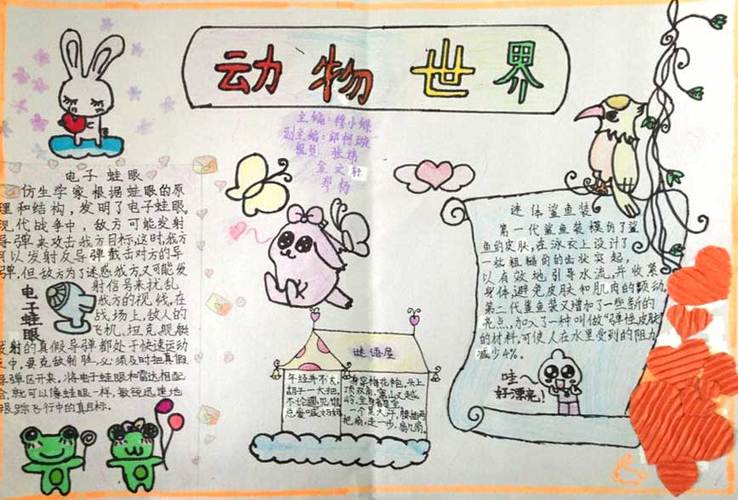 动物世界
主编
副主编
组员
电子蛙眼
仿生学家根据蛙眼的原
理和结构,发明了电子蛙眼。
现代战争中,敌方可能发射
导弹来攻击我方目标,这时,我方
可以发射反导弹截击对方的导
弹,但敌方为了迷惑我方,又可能发
射信号来扰乱
我方的视线,在
战场上,敌人的
飞机,坦克,舰艇
发射的真假导弹都处于快速运动
之中,要克敌制胜,必须及时把真假
导弹区开来,将电子蛙眼和雷达相配
合,就可以像蛙眼一样,敏锐迅速地
跟踪飞行中的真目标。
电子蛙眼
谜语屋
年纪并不大,
胡子一大把,
不论遇见谁,
总爱喊妈妈
身穿梅花袍,头上
顶双角,
全身有
迷体鲨鱼装
第一代鲨鱼装模仿了鲨
鱼的皮肤,在泳衣上设计了
一些粗糙的齿状突起,
以有效地引导水流,并收紧
身体,避免皮肤和肌肉的颤动。
第二代鲨鱼装又增加了一些新的
亮点,加入了一种叫做“弹性皮肤”
的材料,可使人在水里受到的阻力
减少4%。
哇
好漂亮!